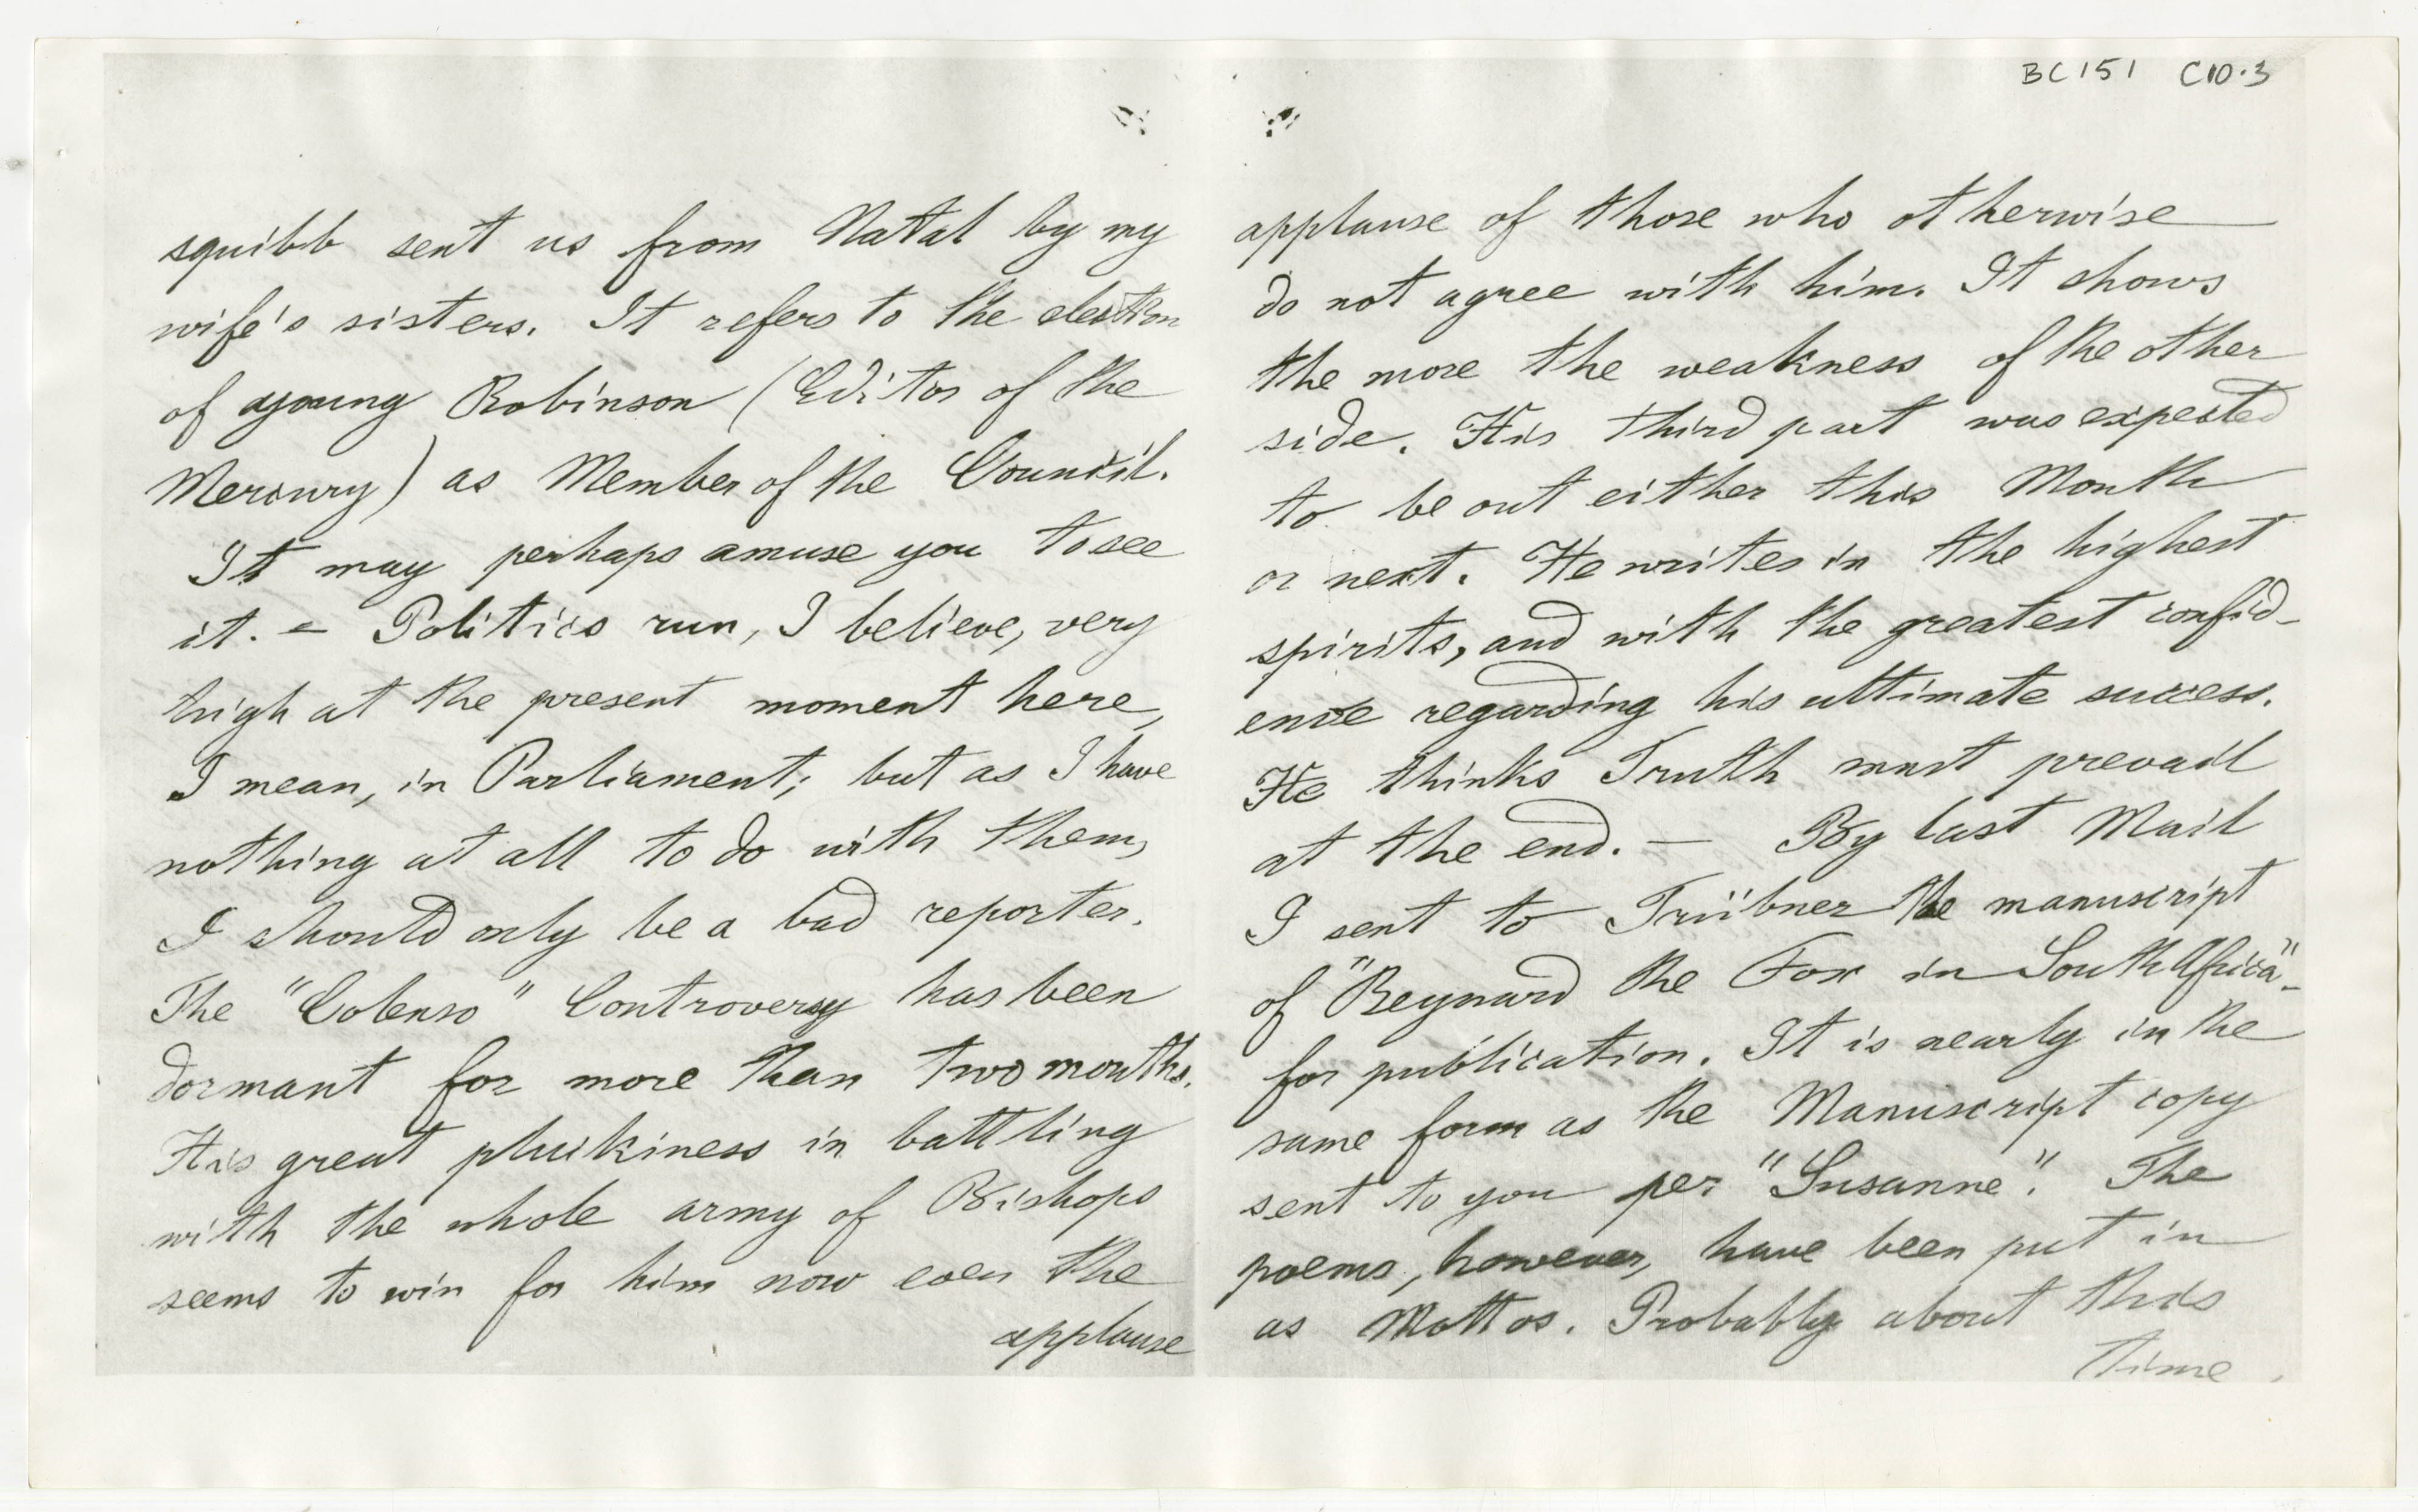 BC151 C10.3
squibb sent us from Natal by my
wife's sisters. It refers to the election
of young Robinson (Editor of the
Mercury) as Member of the Council.
It may perhaps amuse you to see
it. – Politics run, I believe, very
high at the present moment here,
I mean, in Parliament; but as I have
nothing at all to do with them,
I should only be a bad reporter.
The "Colenso" Controversy has been
dormant for more than two months.
His great pluckiness in battling
with the whole army of Bishops
seems to win for him now even the
applause
applause of those who otherwise
do not agree with him. It shows
the more the weakness of the other
side. His third part was expected
to be out either this Month
or next. He writes in the highest
spirits, and with the greatest confid-
ence regarding his ultimate success.
He thinks Truth must prevail
at the end. — By last Mail
I sent to Trübner the manuscript
of "Reynard the Fox in South Africa"-
for publication. It is nearly in the
same form as the Manuscript copy
sent to you per "Susanne". The
poems, however, have been put in
as Mottos. Probably about this
time